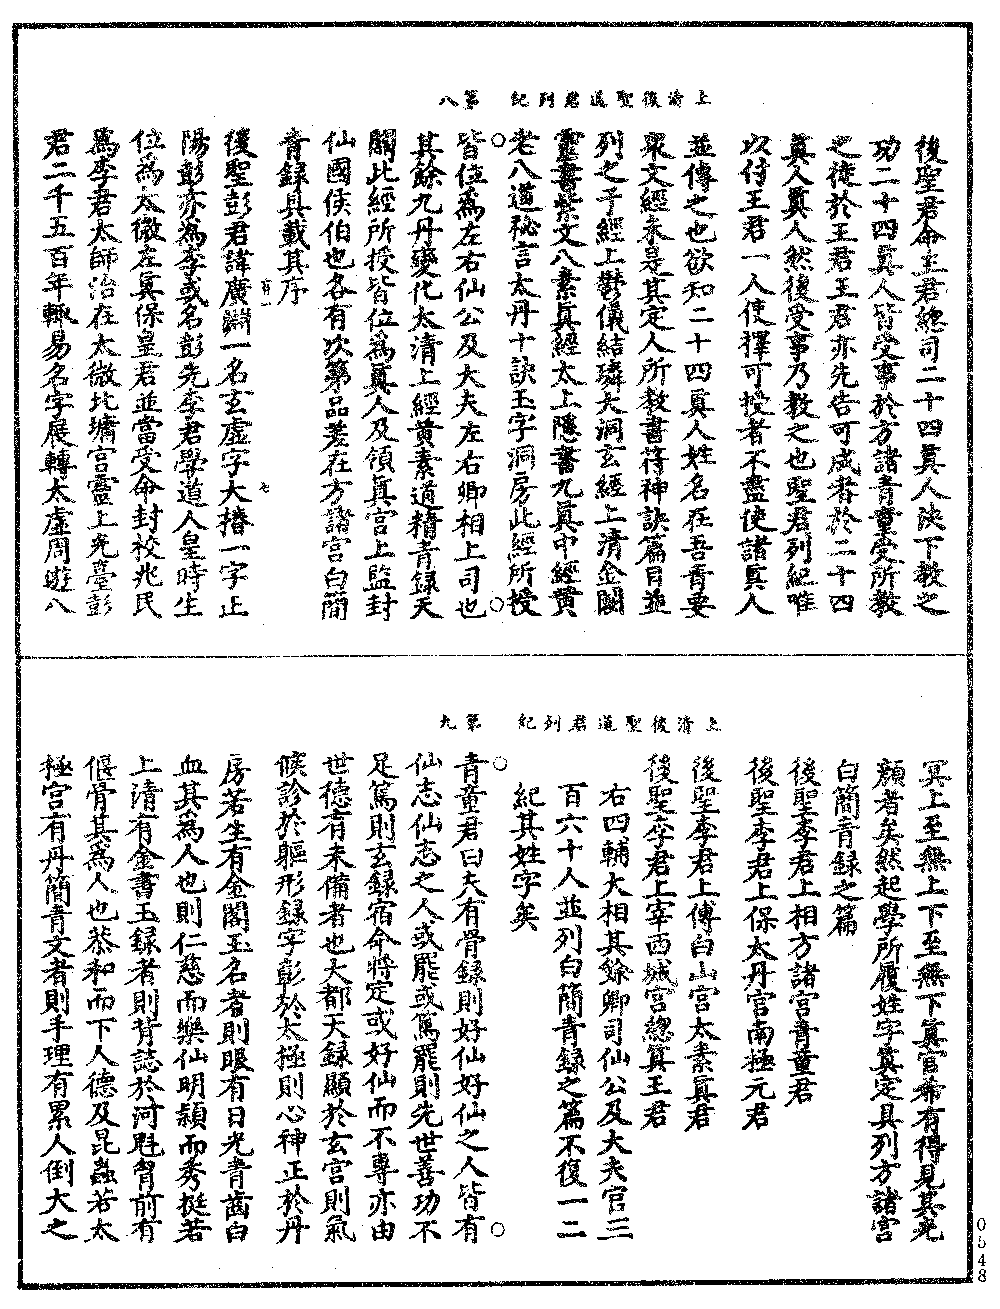 上清後聖道君列紀　第八
後聖君命王君總司二十四真人決下教之
功二十四真人皆受事於方諸青童受所教
之徒於王君王君亦先告可成者於二十四
真人真人然後受事乃教之也聖君列紀唯
以付王君一人使擇可授者不盡使諸真人
並傳之也欲知二十四真人姓名在吾青要
眾文經系是其定人所教書符神訣篇目並
列之于經上欝儀結璘大洞玄經上清金闕
靈書紫文八素真經太上隱書九真中經黃
老八道秘言太丹十訣玉字洞房此經所授
皆位為左右仙公及大夫左右卿相上司也
其餘九丹變化太清上經黃素道精青録天
關此經所授皆位為真人及領真宮上監封
仙國侯伯也各有次第品差在方諸宮白簡
青録具載其序
後聖彭君諱廣淵一名玄虛字大椿一字正
陽彭亦為李或名彭先李君學道人皇時生
位為太微左真保皇君並當受命封校兆民
為李君太師治在太微北墉宮靈上光臺彭
君二千五百年輒易名字展轉太虛周遊八
有一　七
上清後聖道君列紀　第九
冥上至無上下至無下真官希有得見其光
顏者矣然起學所履姓字真定具列方諸宮
白簡青録之篇
後聖李君上相方諸宮青童君
後聖李君上保太丹宮南極元君
後聖李君上傅白山宮太素真君
後聖李君上宰西城宮總真王君
右四輔大相其餘卿司仙公及大夫官三
百六十人並列白簡青録之篇不復一二
紀其姓字矣
青童君曰夫有骨録則好仙好仙之人皆有
仙志仙志之人或罷或篤罷則先世善功不
足篤則玄録宿命將定或好仙而不專亦由
世德有未備者也夫都天録顯於玄宮則氣
候診於軀形録字彰於太極則心神正於丹
房若生有金閣玉名者則眼有日光青齒白
血其為人也則仁慈而樂仙明穎而秀挺若
上清有金書玉録者則背誌於河魁胷前有
偃骨其為人也恭和而下人德及昆蟲若太
極宮有丹簡青文者則手理有累人倒大之
0548